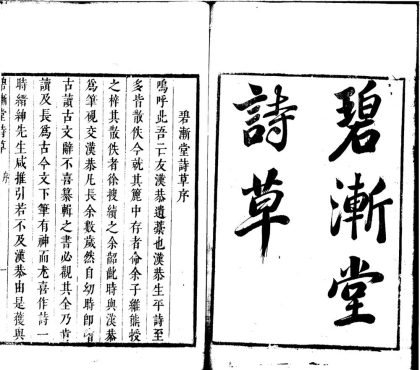 碧漸堂
詩草
碧漸堂詩草序
嗚呼此吾亡友漢恭遺藁也漢恭生平詩至
多皆散佚今就其篋中存者俾余子繼熊授
之梓其散佚者徐搜續之余時與漢恭
為筆硯交漢恭凡長余數歲然自幼時即
古讀古文辭不喜纂輯之書必觀其全乃肯
讀及長為古今文下筆有神而尤喜作詩一
時縉紳先生咸推引若不及漢恭由是獲與
碧漸堂詩草 序